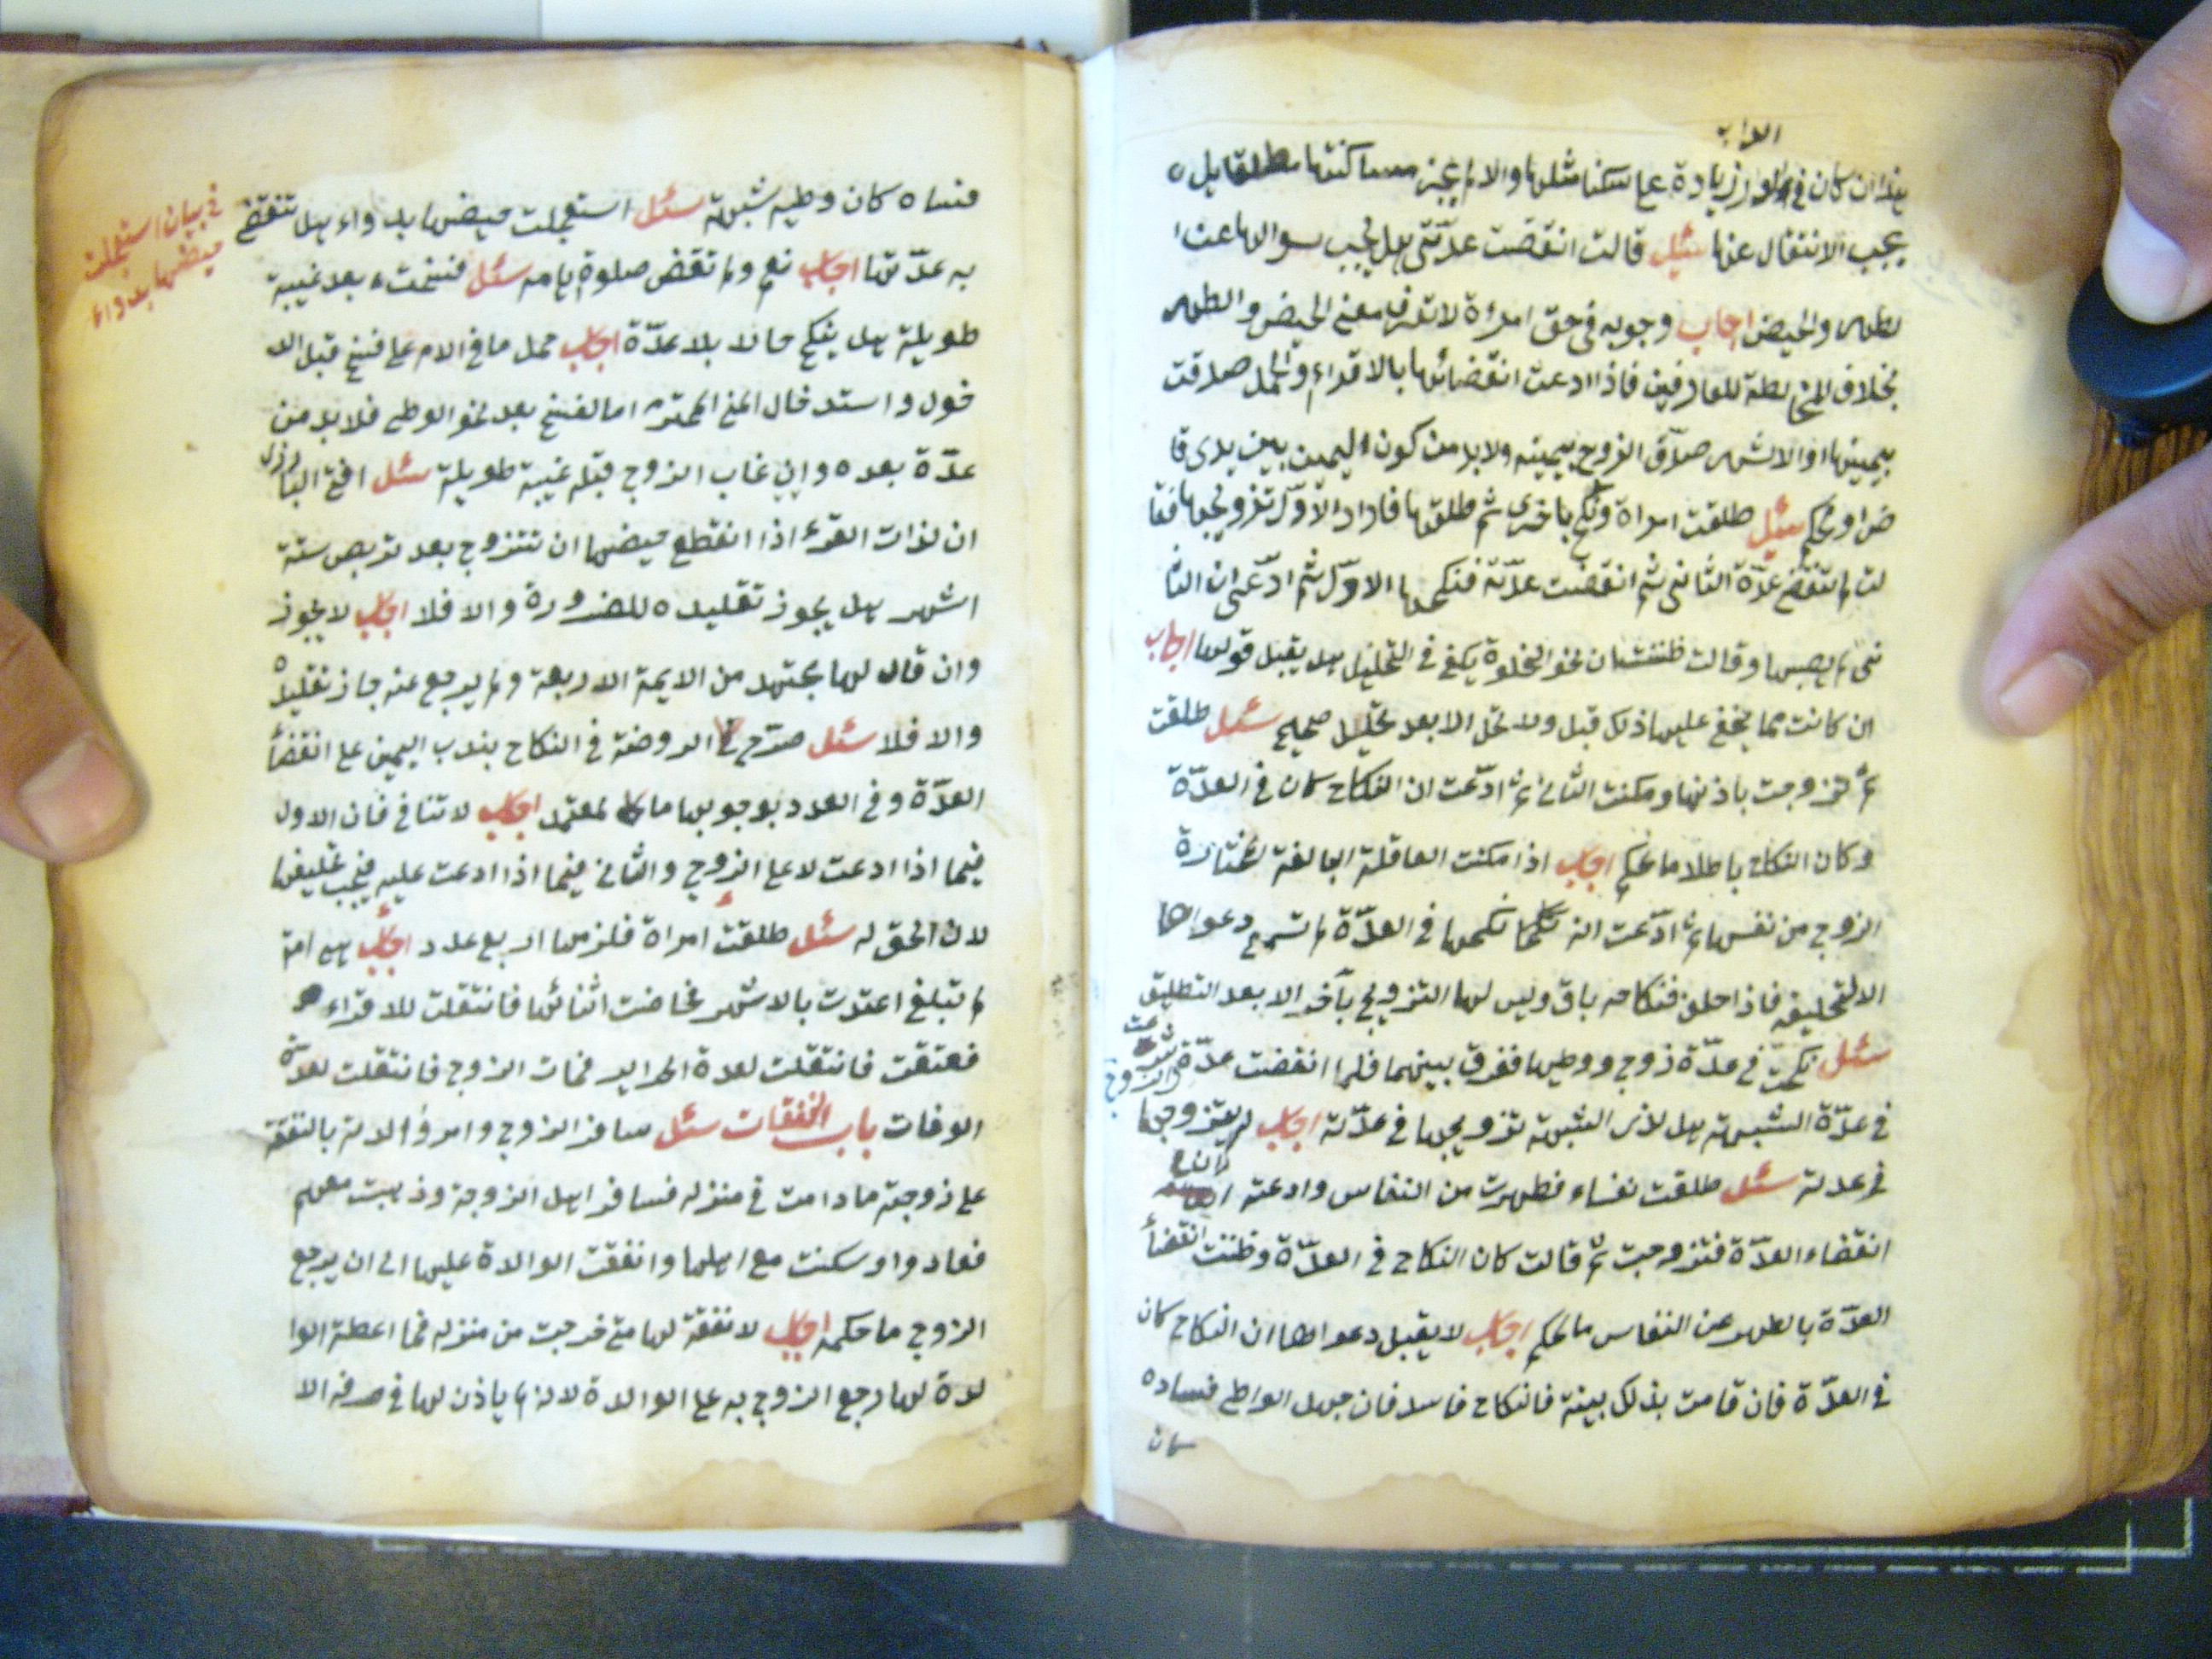 الواب
هذا ان كان في زيادة على سكنا مثلها والا لم يجز مساكنتها مطلقا بل
يجب الانتقال عنها سئل قالت انقضت عدّتي هل يجب سوالها عن ا
لطهر والحيض اجاب وجوبه في حق امرءة لا تعرف معنى الحيض والطهر
بخلاف المخالطة للعارفين فاذا ادعت انقضائها بالاقراء والحمل صدقت
بيمينها او الاشهر صدّق الزوج بيمينه ولا بد من كون اليمين بين يدي قا
ض او محكم سئل طلقت امراة ونكح باخرى ثم طلقها فاراد الاوّل تزويجها فقا
لت لم تنقض عدّة الثاني ثم انقضت عدّته فنكحها الاوّل ثم ادّعى ان الثا
ني لم يصبها وقالت ظننت ان نحو الخلوة يكفي في التحليل هل يقبل قولها اجاب
ان كانت مما يخفى عليها ذلك قبل ولا تحل الا بعد تحليل صحيح سئل طلقت
ثم تزوجت باذنها ومكنت الثاني ثم ادّعت ان النكاح كان في العدّة
وكان النكاح باطلا ما الحكم اجاب اذا مكنت العاقلة البالغة المختارة
الزوج من نفسها ثم ادّعت انه نكحها في العدّة لم تسمع دعواها
الا لتحليفه فاذا حلف فنكاحه باق وليس لها التزويج بآخر الا بعد التطليق
سئل نكحت في عدّة زوج ووطيها ففرق بينهما فلما انقضت عدّة الزوج شرعت
في عدّة الشبهة هل لذي الشبهة تزويجها في عدّته اجاب له تزوجها
في عدته سئل طلقت نفساء فطهرت من النفاس وادعت ان كان
انقضاء العدّة فتزوجت ثم قالت كان النكاح في العدّة وظننت انقضأ
العدّة بالطهر عن النفاس ما الحكم اجاب لا يقبل دعواها ان النكاح كان
في العدّة فان قامت بذلك بينة فالنكاح فاسد فان جهل الواطي فساده
كان
فساده كان وطيه شبهة سئل استعجلت حيضها بدواء هل تنقضي
في بيان استعجلت
حيضها بدواء
به عدّتها اجاب نعم ولم تقض صلوة ايامه سئل فسخت بعد غيبة
طويلة هل ينكح حالا بلا عدّة اجاب حمل ما في الام على فسخ قبل الد
خول واستدخال المني المحترم اما لفسخ بعد نحو الوطي فلا بد من
عدّة بعده وان غاب الزوج قبله غيبة طويلة سئل افتى البارزي
ان لذات القرء اذا انقطع حيضها ان تتزوج بعد تربص ستة
اشهر هل يجوز تقليده للضرورة والا فلا اجاب لا يجوز
وان قال لها مجتهد من الايمة الاربعة ولم يرجع عنه جاز تقليده
والا فلا سئل صرّح في الروضة في النكاح بندب اليمين على انقضأ
العدّة وفي العدد بوجوبها ما لمعتمد اجاب لا تنافي فان الاول
فيما اذا ادعت لا على الزوج والثاني فيما اذا ادعت عليه فيجب تحليفها
لان الحق له سئل طلقت امراة فلزمها اربع عدد اجاب هي امة
لم تبلغ اعتدت بالاشهر فحاضت اثنائها فانتقلت للاقراء
فعتقت فانتقلت لعدة الحراير فمات الزوج فانتقلت لعدّة
الوفات باب النفقات سئل سافر الزوج وامر والدته بالنفقة
على زوجة ما دامت في منزله فسافر اهل الزوجة وذهبت معهم
فعادوا وسكنت مع اهلها وانفقت الوالدة عليها الى ان يرجع
الزوج ما حكمه اجاب لا نفقة لها متى خرجت من منزله فما اعطته الوا
لدة لها رجع الزوج به على الوالدة لانه لم ياذن لها في صرفه الا